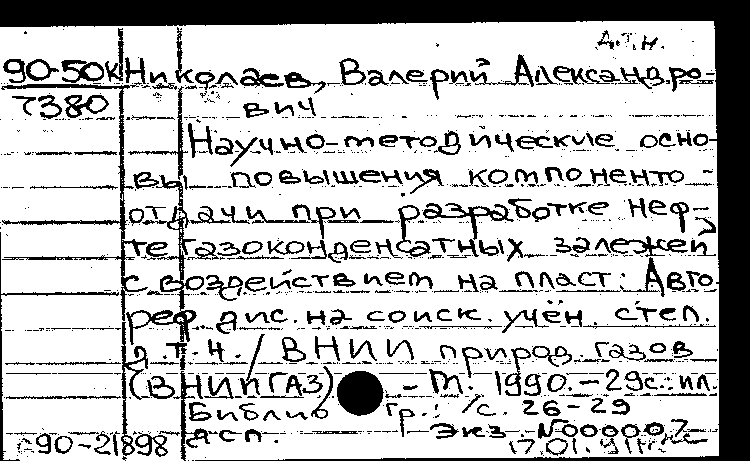 д.т.н.
90-50к Николаев, Валерий Александро-
7380 вич
Научно-методические осно-
вы повышения компоненто-
отдачи при разработке неф-
тегазоконденсатных залежей
с воздействием на пласт: Авто-
реф. дис. на соиск. учён. степ.
д.т.н. / ВНИИ природ. газов
(ВНИИГАЗ) - М. 1990. - 29с.: ил.
Библиогр.: /с. 26-29
дсп. Экз. №000007
90-21898 17.01.91